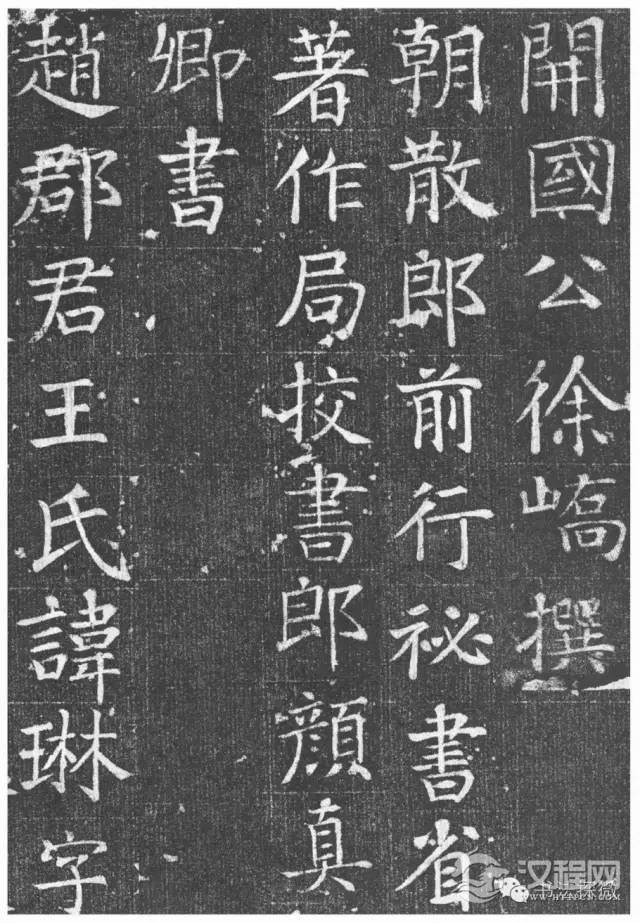 開國公徐嶠撰
朝散郎前行祕書省
著作局挍書郎顏真
卿書
趙郡君王氏諱琳字
汉程网
书法探微